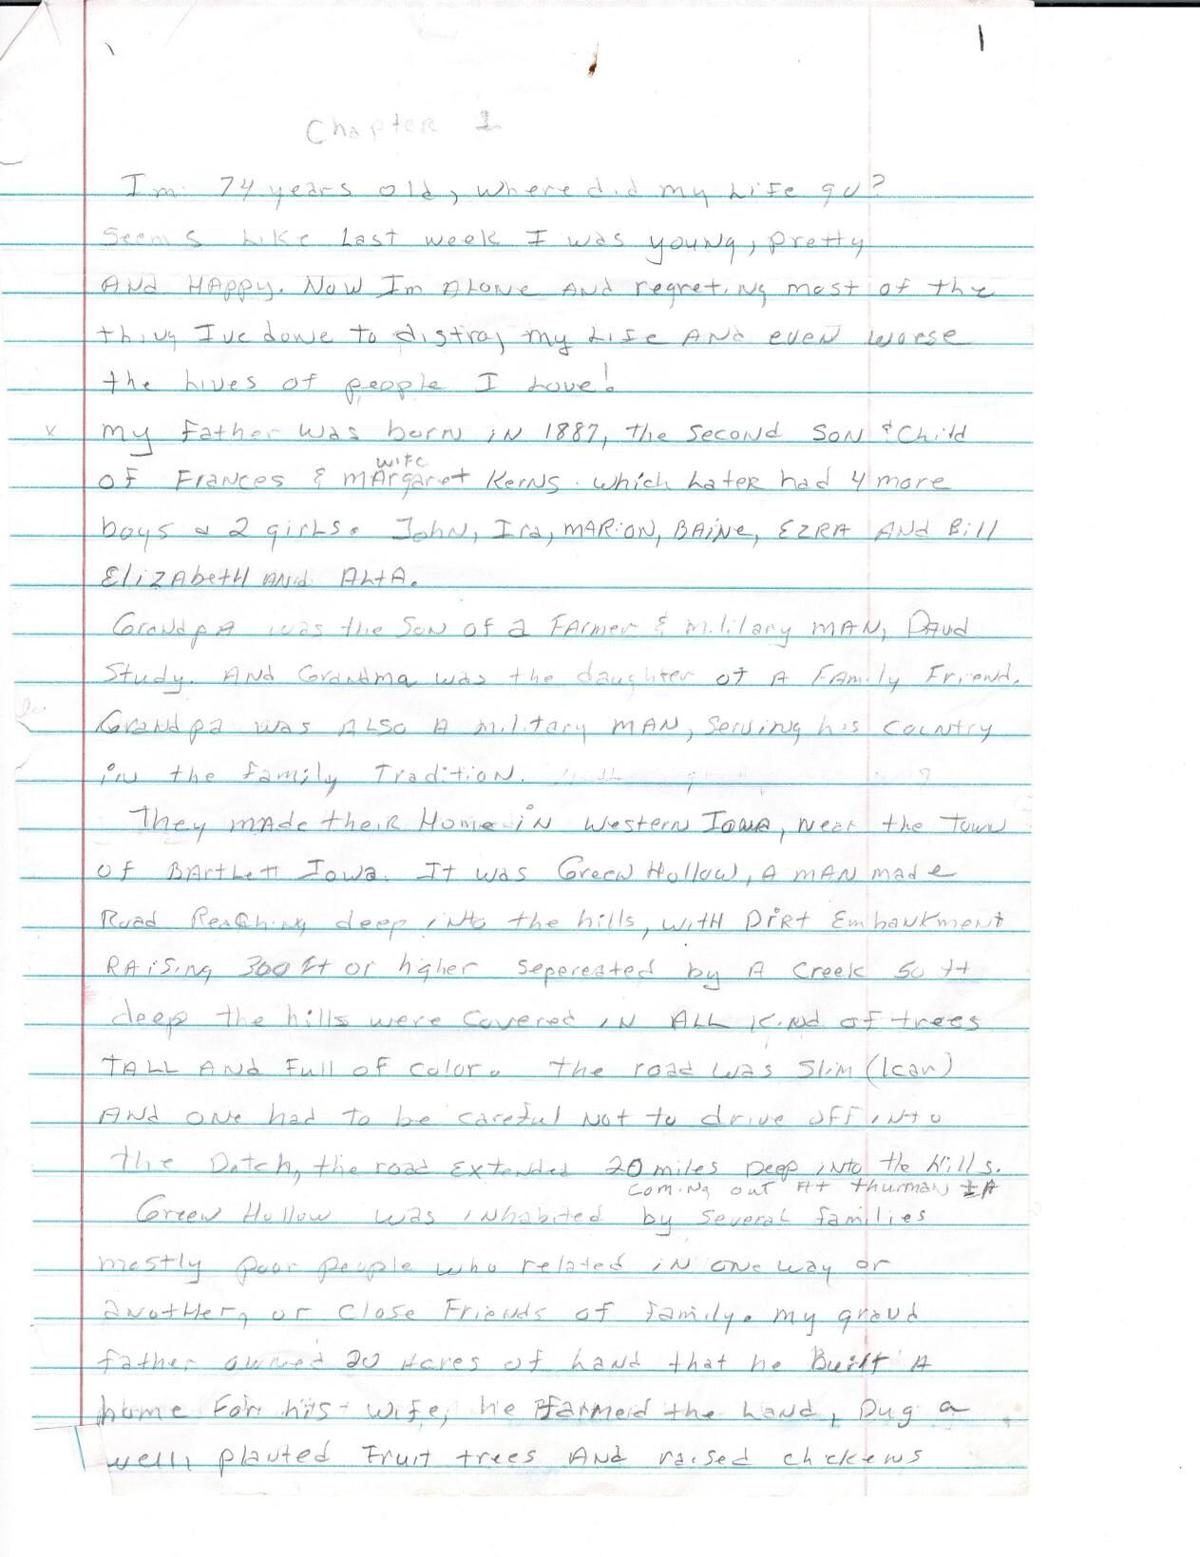 1
Chapter 1
Im 74 years old, where did my Life go?
Seems Like Last week I was young, pretty
And HAppy. Now Im ALONE AND regreting most of the
thing Ive done to distroy my Life AND even worse
the Lives of people I Love!
my Father was born in 1887, the second son & Child
wife
of Frances & MArgaret Kerns. which Later had 4 more
boys & 2 girls. John, Ira, MARION, BAiNe, EZRA AND Bill
ElizAbetH AND ALtA.
GrandpA was the Son of a FArmer & military MAN, David
Study. AND Grandma was the daughter of A FAmily Friend.
Grandpa was ALSO A military MAN, Serving his Country
in the family Tradition.
They mAde theiR Home in Western Iowa, Near the Town
of BArtLett Iowa. It was Green Hollow, A MAN made
Road ReaChing deep into the hills, witH DiRt Embankment
RAiSing 300 ft or higher Sepereated by A Creek 50 ft
deep the hills were Covered in ALL Kind of trees
TALL AND Full of Color. the road was Slim (1car)
AND one had to be careful Not to drive off into
the Ditch, the road Extended 20 miles Deep into the hills.
Coming out At thurman IA
Green Hollow was inhabited by several families
mostly poor people who related in one way or
anotHer, or Close Friends of family. my grand
father owned 20 Acres of Land that he Built A
home For his wife, he Farmed the Land, Dug a
well, planted Fruit trees AND raised chickens